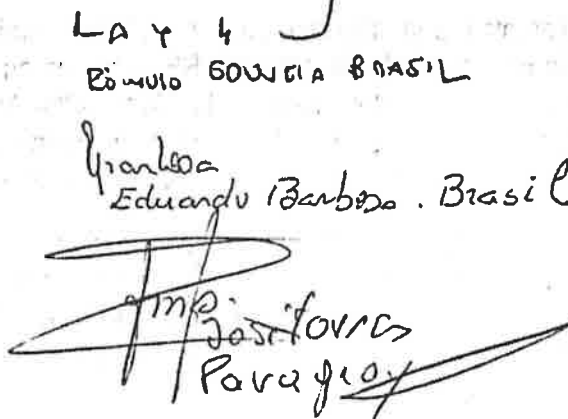 RÔMULO GOUVEIA BRASIL
Eduardo Barbosa. Brasil
José Torres
Paraguay